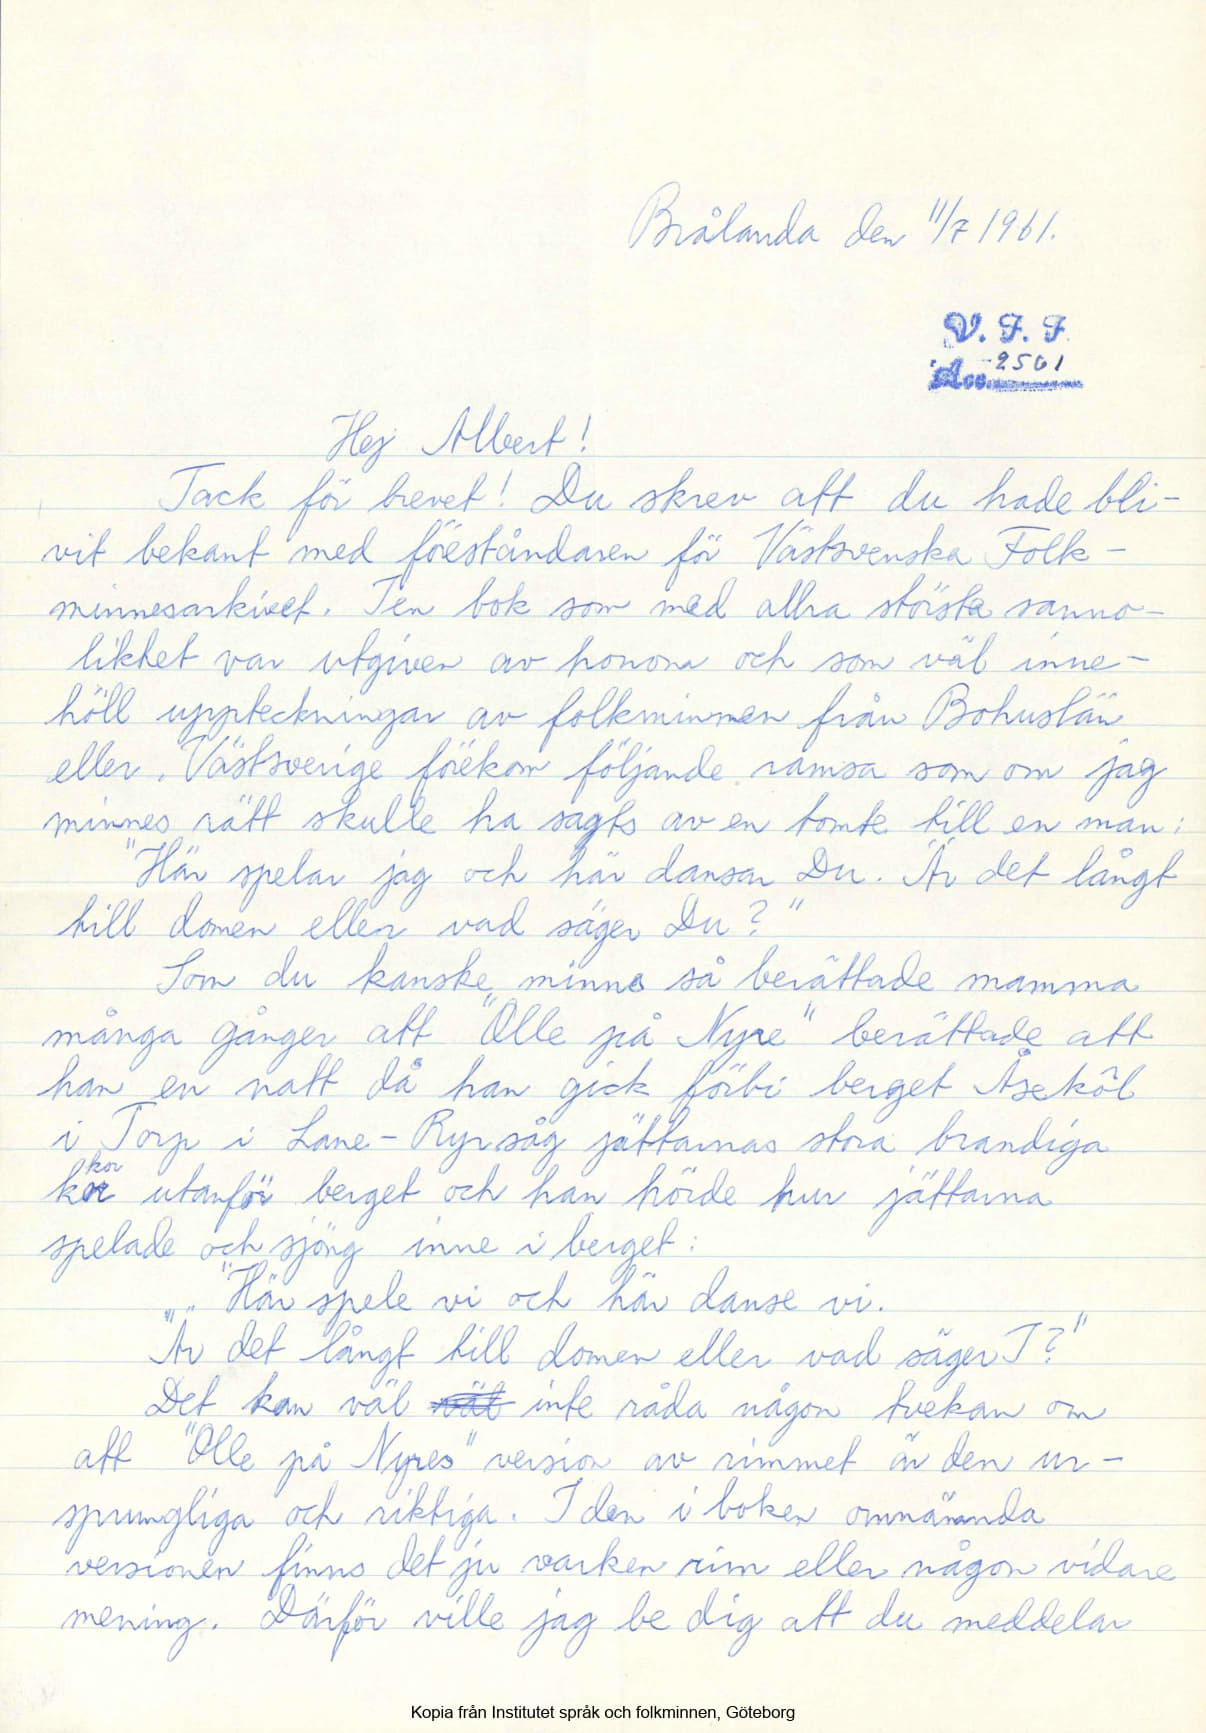 Brålanda den 11/7 1961.
V. F. F.
Acc. 2501
Hej Albert!
Tack för brevet! Du skrev att du hade bli-
vit bekant med föreståndaren för Västsvenska Folk-
minnesarkivet. I en bok som med allra största sanno-
likhet var utgiven av honom och som väl inne-
höll uppteckningar av folkminnen från Bohuslän
eller Västsverige förekom följande ramsa som om jag
minnes rätt skulle ha sagts av en tomte till en man:
"Här spelar jag och här dansar Du. Är det långt
till domen eller vad säger Du?"
Som du kanske minns så berättade mamma
många gånger att "Olle på Nyre" berättade att
han en natt då han gick förbi berget Åsekôl
i Torp i Lane-Ryr såg jättarnas stora brandiga
kor
utanför berget och han hörde hur jättarna
spelade och sjöng inne i berget:
"Här spele vi och här danse vi.
"Är det långt till domen eller vad säger I?"
Det kan väl väl inte råda någon tvekan om
att "Olle på Nyres" version av rimmet är den ur-
sprungliga och riktiga. I den i boken omnämnda
versionen finns det ju varken rim eller någon vidare
mening. Därför ville jag be dig att du meddelar
Kopia från Institutet språk och folkminnen, Göteborg